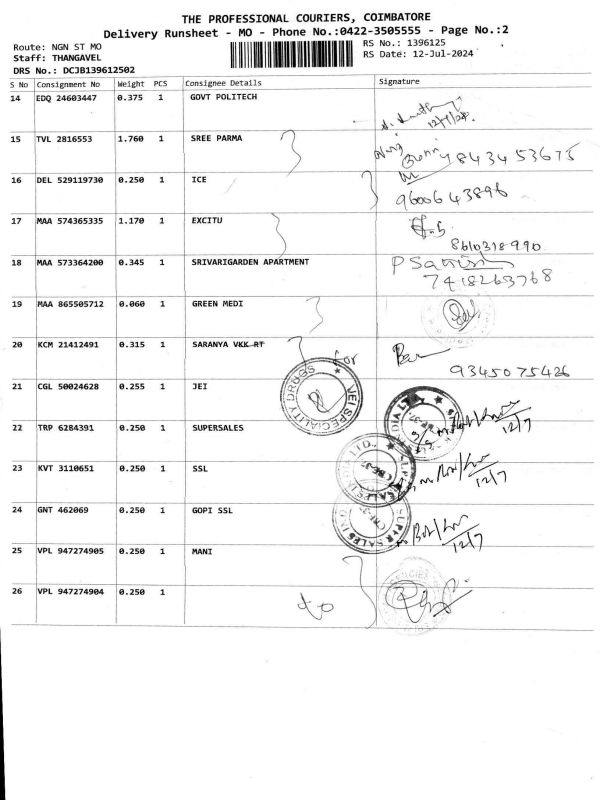 THE PROFESSIONAL COURIERS, COIMBATORE
Delivery Runsheet - MO - Phone No.:0422-3505555 - Page No.:2
Route: NGN ST MO RS No.: 1396125
Staff: THANGAVEL RS Date: 12-Jul-2024
DRS No.: DCJB139612502
S No Consignment No Weight PCS Consignee Details Signature
14 EDQ 24603447 0.375 1 GOVT POLITECH
12/7/24
15 TVL 2816553 1.760 1 SREE PARMA
9843453675
16 DEL 529119730 0.250 1 ICE
9600643896
17 MAA 574365335 1.170 1 EXCITU
8610318990
18 MAA 573364200 0.345 1 SRIVARIGARDEN APARTMENT P Satish
7418263768
19 MAA 865505712 0.060 1 GREEN MEDI
20 KCM 21412491 0.315 1 SARANYA VKK RT for
9345075426
21 CGL 50024628 0.255 1 JEI
JEI SPECIALITY DRUGS
12/7
22 TRP 6284391 0.250 1 SUPERSALES
23 KVT 3110651 0.250 1 SSL
12/7
24 GNT 462069 0.250 1 GOPI SSL
SUPER SALES
12/7
25 VPL 947274905 0.250 1 MANI
26 VPL 947274904 0.250 1
to